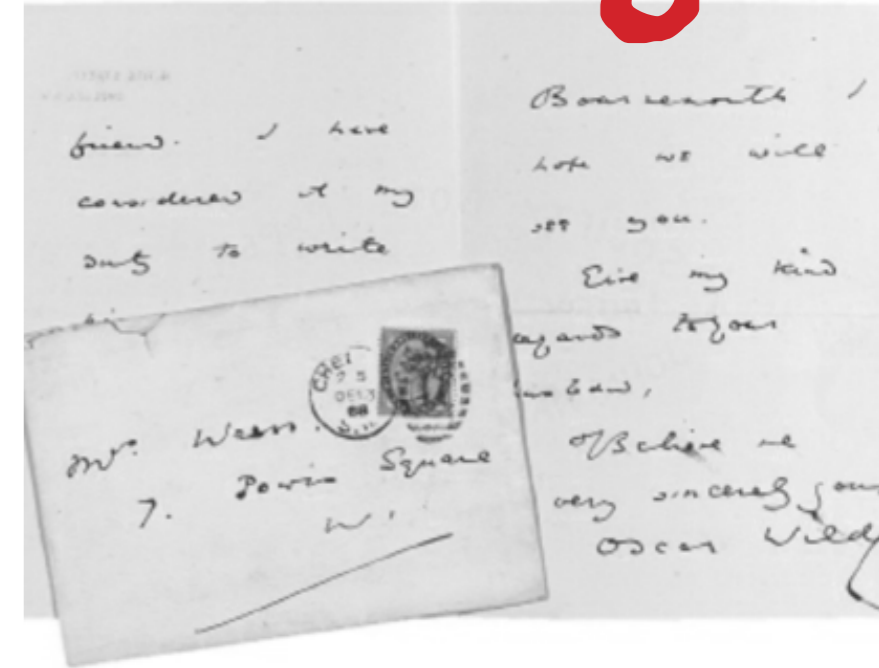 friend. I have
considered it my
duty to write
Bournemouth I
hope we will
see you.
Give my kind
regards to your
husband,
Believe me
very sincerely your
Oscar Wilde
CHEL
DE 13
88
S.W.
7. Powis Square
W.